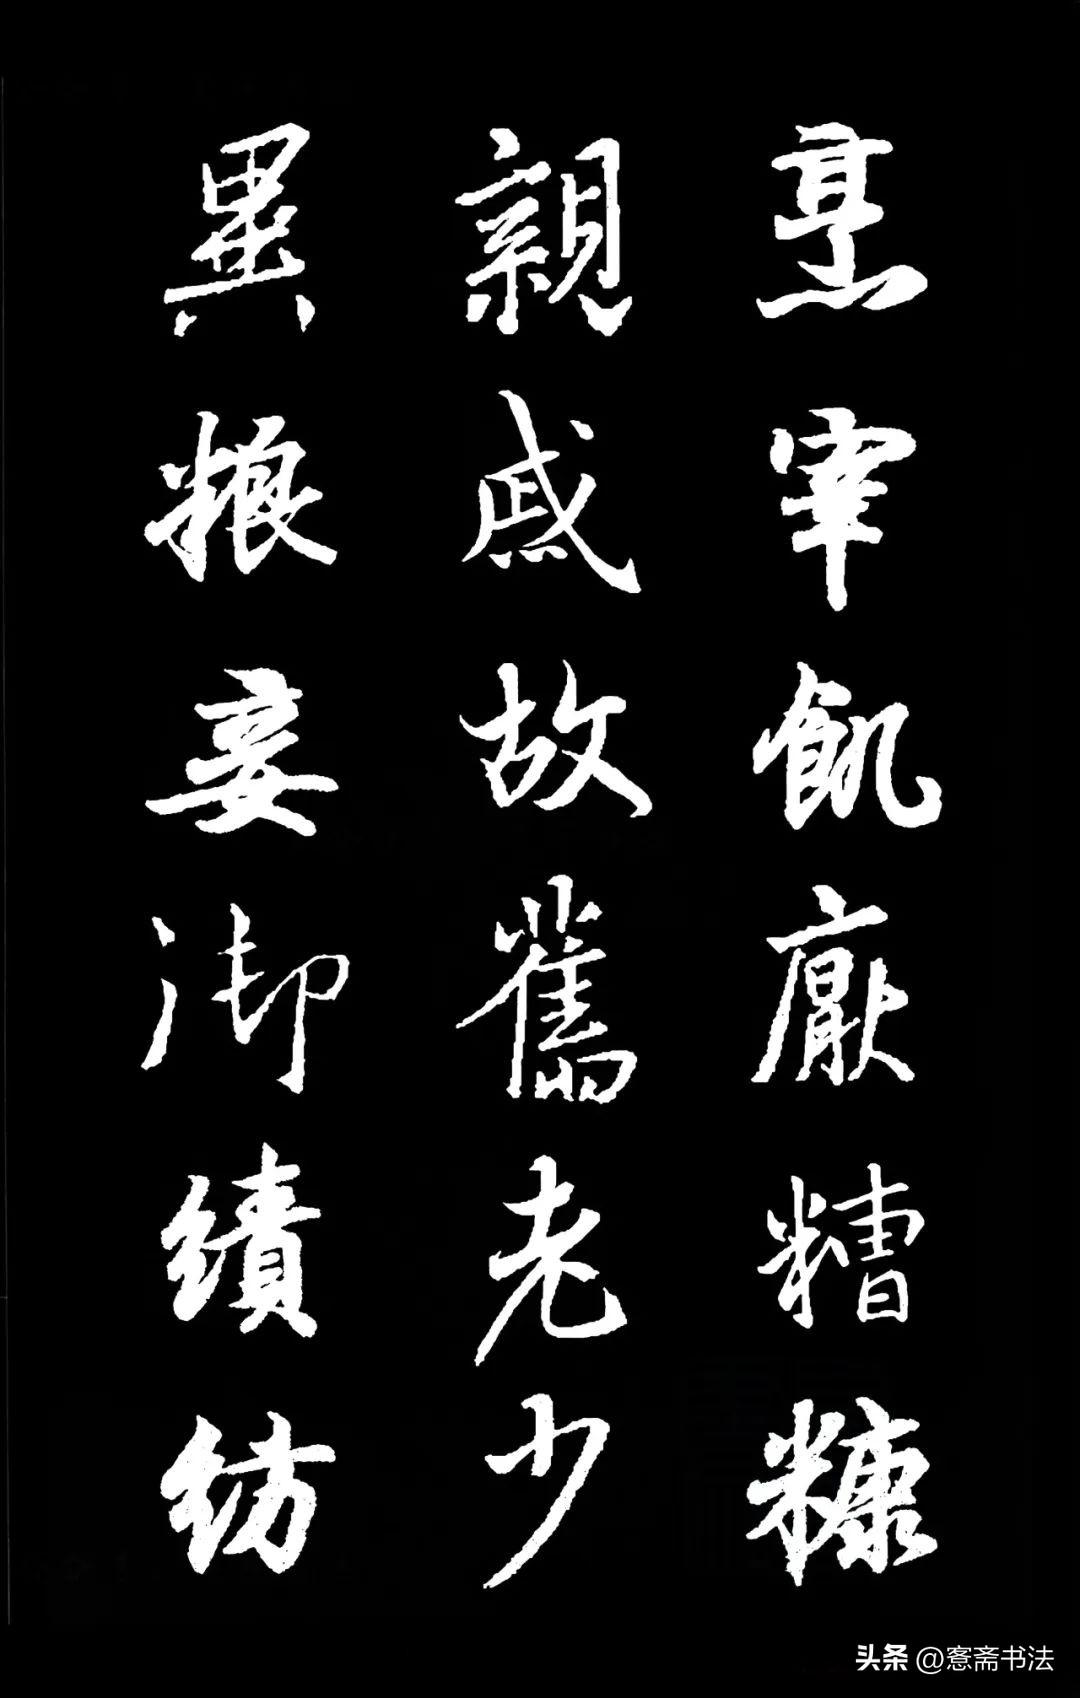 烹宰飢厭糟糠
親戚故舊老少
異粮妾御績紡
头条 @愙斋书法